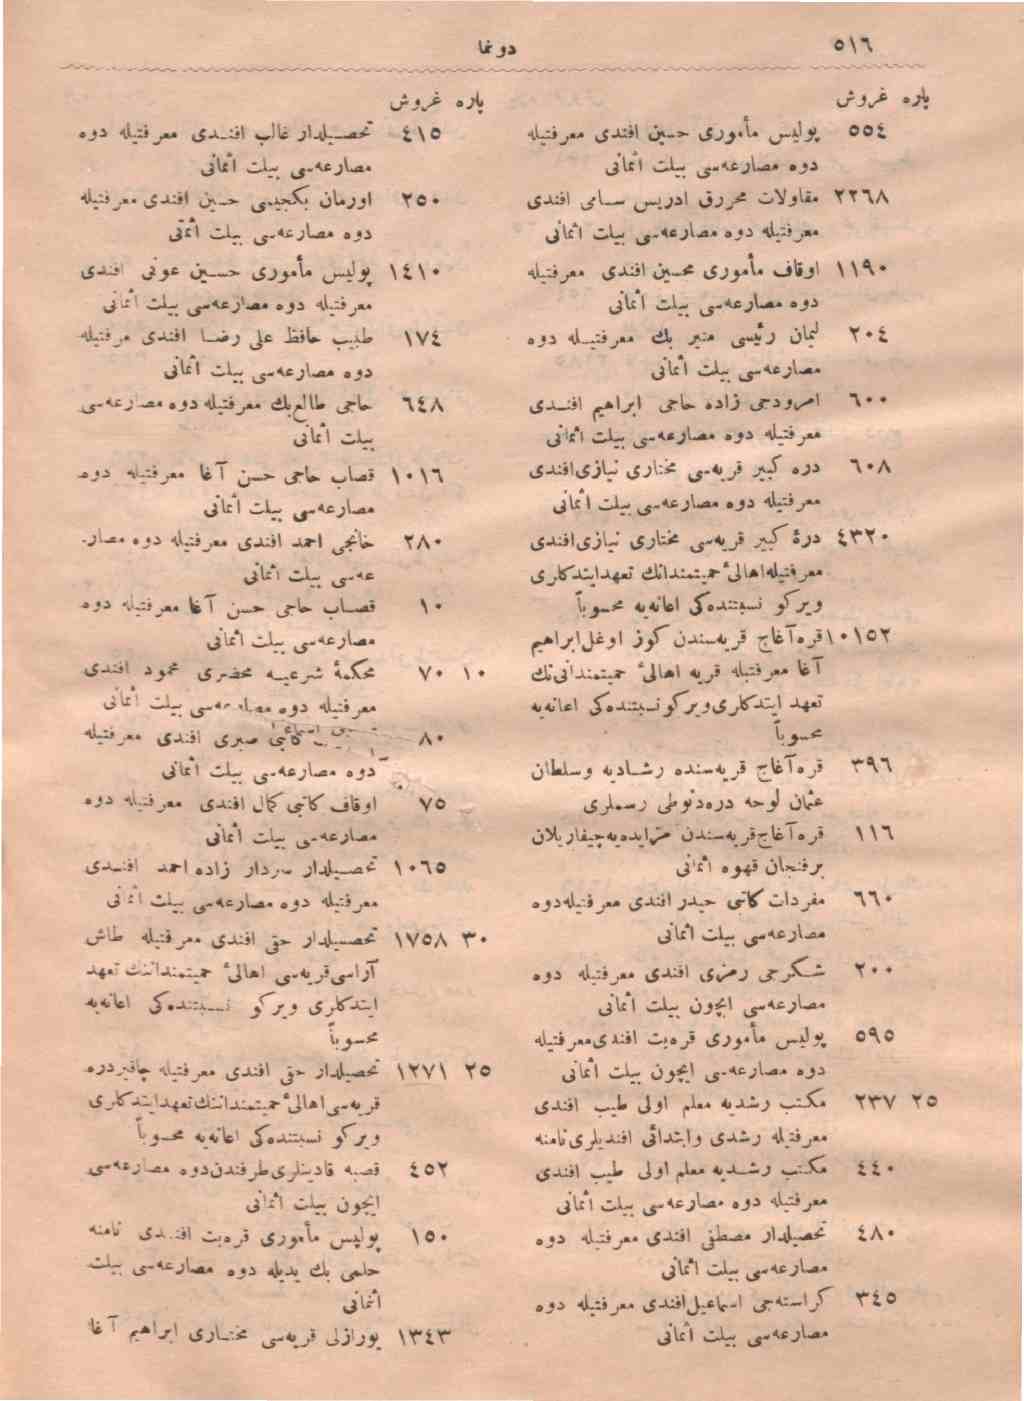 ٥١٦
دونما
پاره غروش
٥٥٤ پولیس مأموری حسین افندی معرفتیله
دوه مصارعه‌سی بیلت اثمانی
٢٢٦٨ مقاولات محرری ادریس سامی افندی
معرفتیله دوه مصارعه‌سی بیلت اثمانی
١١٩٠ اوقاف مأموری محسین افندی معرفتیله
دوه مصارعه‌سی بیلت اثمانی
٢٠٤ لیمان رئیسی منیر بك معرفتیله دوه
مصارعه‌سی بیلت اثمانی
٦٠٠ امرودجی زاده حاجی ابراهیم افندی
معرفتیله دوه مصارعه‌سی بیلت اثمانی
٦٠٨ دره کبیر قریه‌سی مختاری نیازی افندی
معرفتیله دوه مصارعه‌سی بیلت اثمانی
٤٣٢٠ درۀ کبیر قریه‌سی مختاری نیازی افندی
معرفتیله اهالیٔ حمیتمندانك تعهد ایتدکلری
ویرکو نسبتنده‌کی اعانه‌یه محسوباً
١٠١٥٢ قره‌آغاج قریه‌سندن کوز اوغلی ابراهیم
آغا معرفتیله قریه اهالیٔ حمیتمندانی‌نك
تعهد ایتدکلری ویرکو نسبتنده‌کی اعانه‌یه
محسوباً
٣٩٦ قره‌آغاج قریه‌سنده رشادیه وسلطان
عثمان لوحه دره‌دنوطی رسملری
١١٦ قره‌آغاج قریه‌سندن مزایده‌یه چیقاریلان
برفنجان قهوه اثمانی
٦٦٠ مفردات کاتبی حیدر افندی معرفتیله دوه
مصارعه‌سی بیلت اثمانی
٢٠٠ شکرجی رمزی افندی معرفتیله دوه
مصارعه‌سی ایچون بیلت اثمانی
٥٩٥ پولیس مأموری قره‌بت افندی معرفتیله
دوه مصارعه‌سی ایچون بیلت اثمانی
٢٥ ٢٣٧ مکتب رشدیه معلم اولی طیب افندی
معرفتیله رشدی وابتدائی افندیلری نامنه
٤٤٠ مکتب رشدیه معلم اولی طیب افندی
معرفتیله دوه مصارعه‌سی بیلت اثمانی
٤٨٠ تحصیلدار مصطفی افندی معرفتیله دوه
مصارعه‌سی بیلت اثمانی
٣٤٥ کراسته‌جی اسماعیل افندی معرفتیله دوه
مصارعه‌سی بیلت اثمانی
پاره غروش
٤١٥ تحصیلدار غالب افندی معرفتیله دوه
مصارعه‌سی بیلت اثمانی
٢٥٠ اورمان بکجیسی حسین افندی معرفتیله
دوه مصارعه‌سی بیلت اثمانی
١٤١٠ پولیس مأموری حسین عونی افندی
معرفتیله دوه مصارعه‌سی بیلت اثمانی
١٧٤ طبیب حافظ علی رضا افندی معرفتیله
دوه مصارعه‌سی بیلت اثمانی
٦٤٨ حاجی طالع بك معرفتیله دوه مصارعه‌سی
بیلت اثمانی
١٠١٦ قصاب حاجی حسن آغا معرفتیله دوه
مصارعه‌سی بیلت اثمانی
٢٨٠ خانجی احمد افندی معرفتیله دوه مصار-
عه‌سی بیلت اثمانی
١٠ قصاب حاجی حسن آغا معرفتیله دوه
مصارعه‌سی بیلت اثمانی
١٠ ٧٠ محکمۀ شرعیه محضری محمود افندی
معرفتیله دوه مصارعه‌سی بیلت اثمانی
٨٠ کاتبی صبری افندی معرفتیله
دوه مصارعه‌سی بیلت اثمانی
٧٥ اوقاف کاتبی کمال افندی معرفتیله دوه
مصارعه‌سی بیلت اثمانی
١٠٦٥ تحصیلدار سردار زاده احمد افندی
معرفتیله دوه مصارعه‌سی بیلت اثمانی
٣٠ ١٧٥٨ تحصیلدار حقی افندی معرفتیله طاش
آراسی قریه‌سی اهالیٔ حمیتمنداننك تعهد
ایتدکلری ویرکو نسبتنده‌کی اعانه‌یه
محسوباً
٢٥ ١٢٧١ تحصیلدار حقی افندی معرفتیله چاقیردره
قریه‌سی اهالیٔ حمیتمنداننك تعهد ایتدکلری
ویرکو نسبتنده‌کی اعانه‌یه محسوباً
٤٥٢ قصبه قادینلری طرفندن دوه مصارعه‌سی
ایچون بیلت اثمانی
١٥٠ پولیس مأموری قره‌بت افندی نامنه
حلمی بك یدیله دوه مصارعه‌سی بیلت
اثمانی
١٣٤٣ یورازلی قریه‌سی مختاری ابراهیم آغا